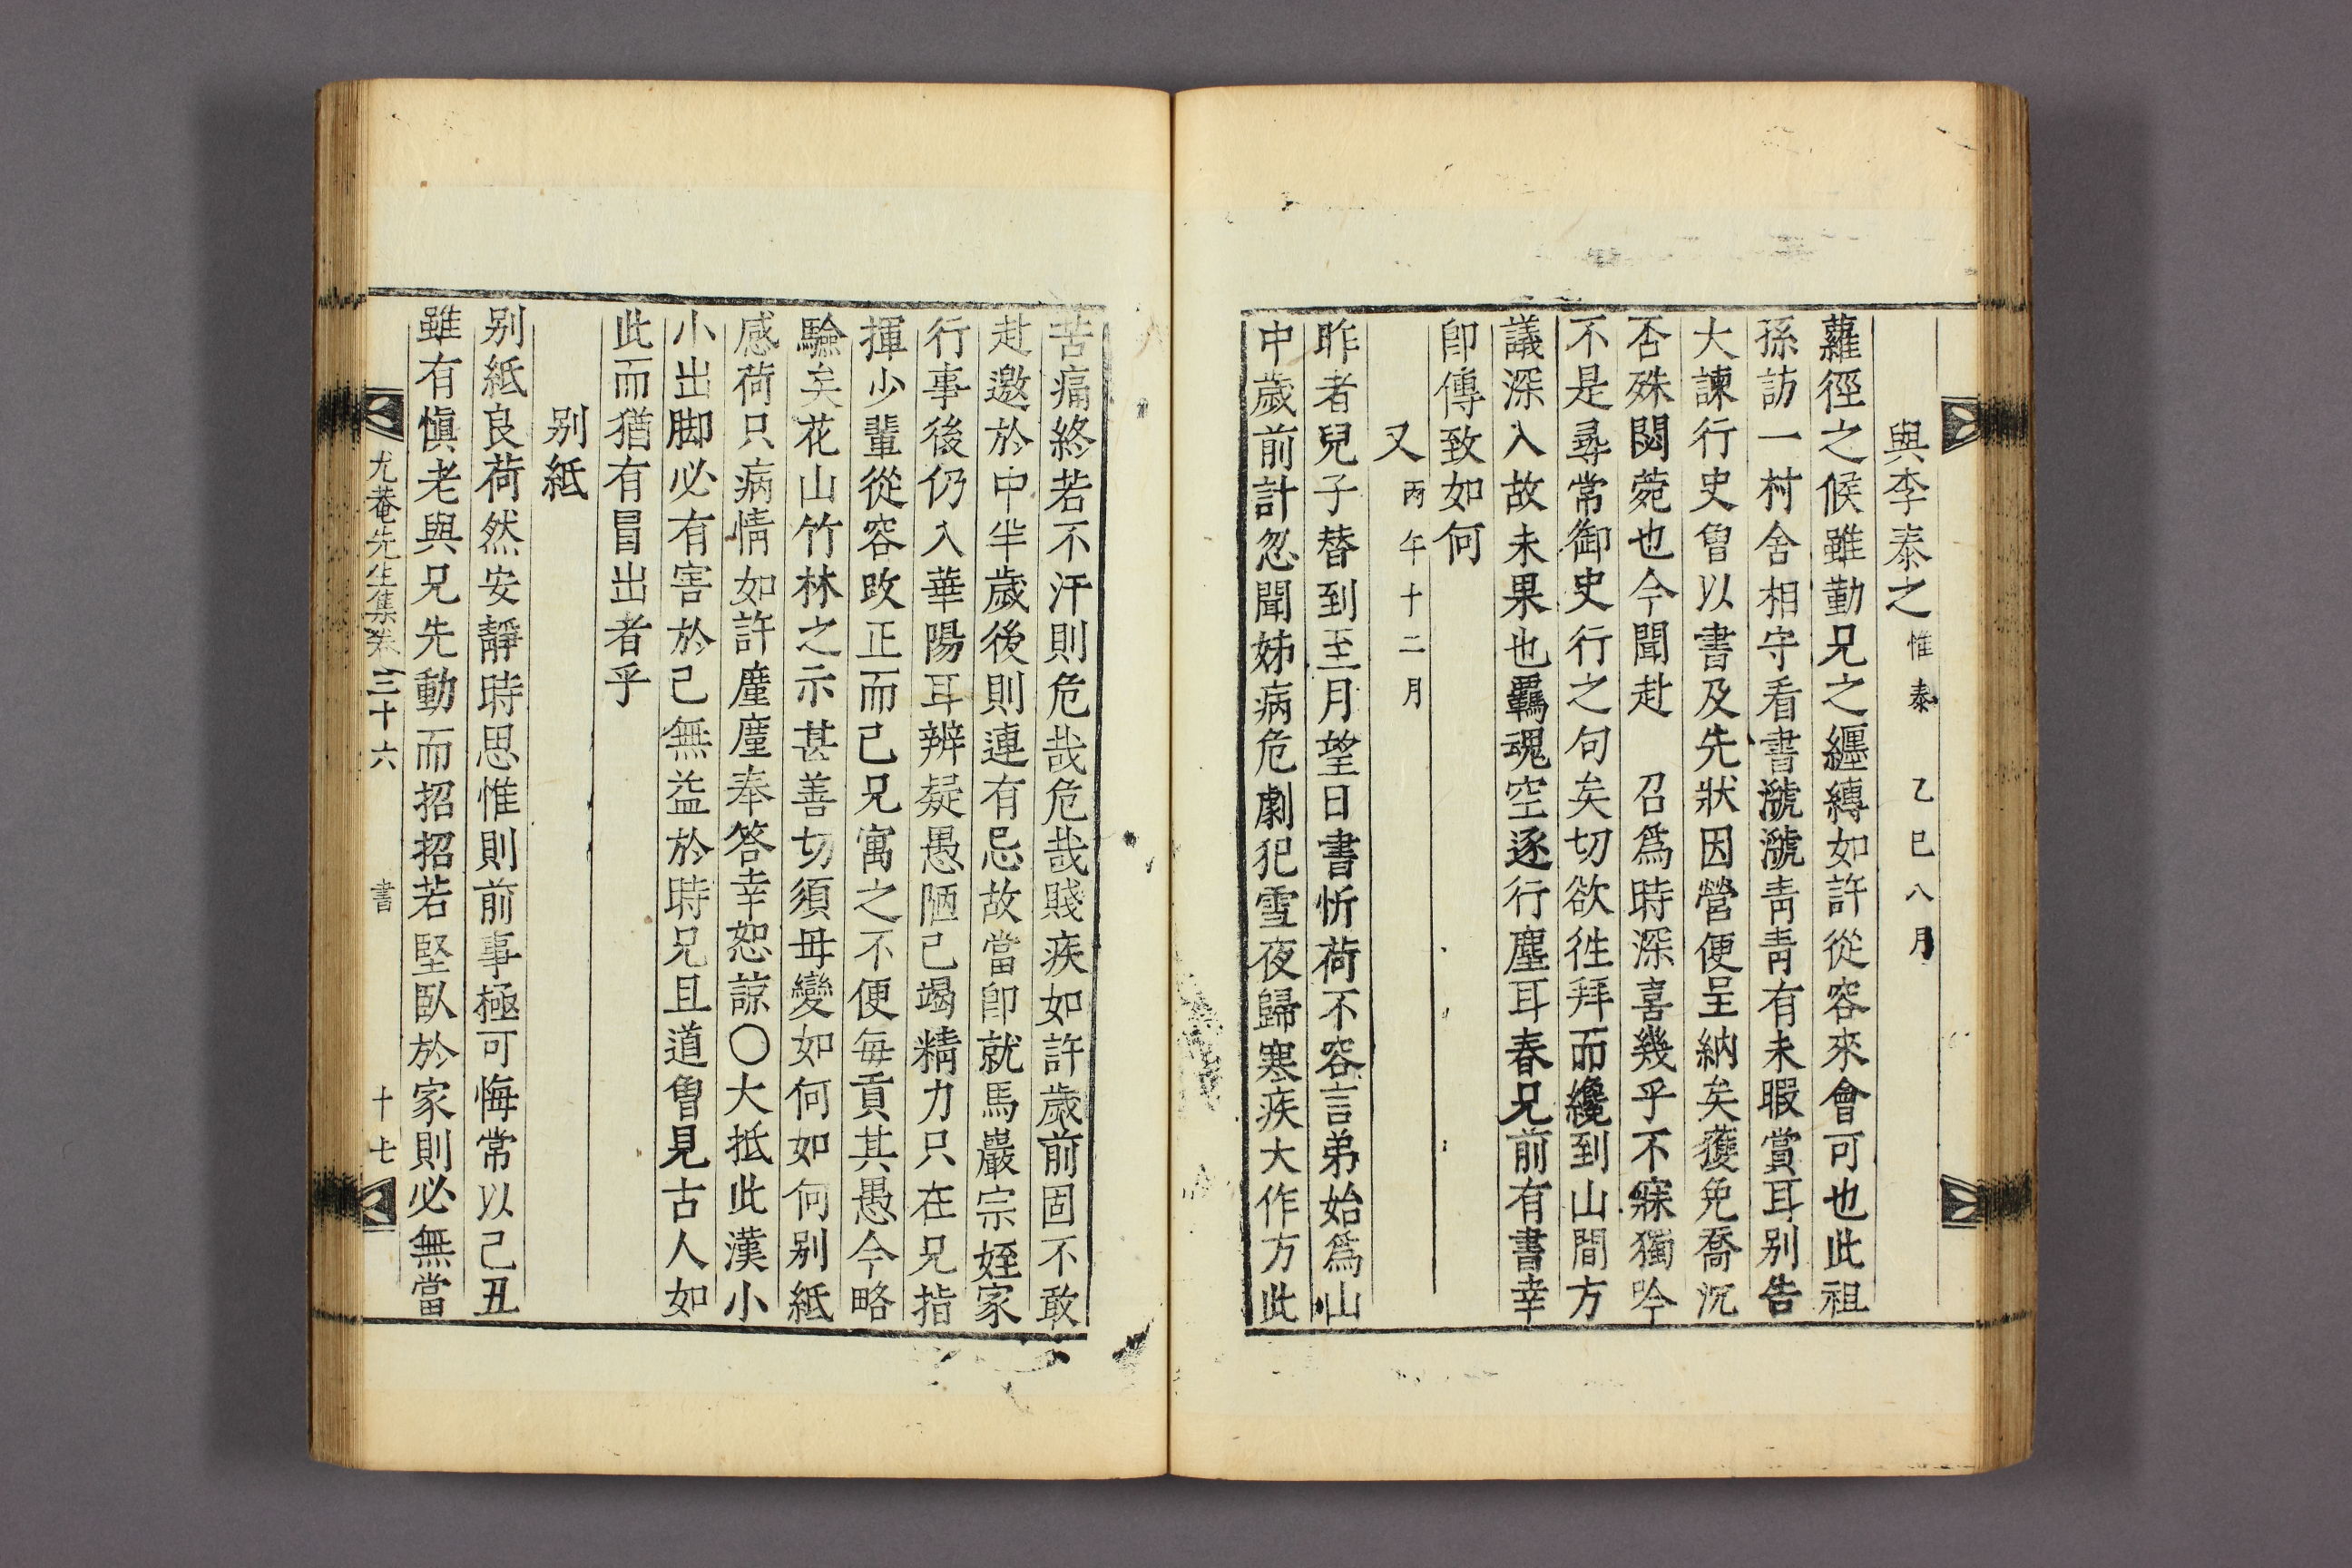 與李泰之 惟泰 乙巳八月
蘿徑之候雖勤兄之纒縳如許從容來會可也此祖
孫訪一村舍相守看書㶁㶁靑靑有未暇賞耳別告
大諫行史曾以書及先狀因營便呈納矣獲免喬沉
否殊悶菀也今聞赴 召爲時深喜幾乎不寐獨吟
不是尋常御史行之句矣切欲徃拜而纔到山間方
議深入故未果也羈魂空逐行塵耳春兄前有書幸
卽傳致如何
又 丙午十二月
昨者兒子替到至月望日書忻荷不容言弟始爲山
中歲前計忽聞姊病危劇犯雪夜歸寒疾大作方此
苦痛終若不汗則危哉危哉賤疾如許歲前固不敢
赴邀於中半歲後則連有忌故當卽就馬巖宗姪家
行事後仍入華陽耳辨疑愚陋已竭精力只在兄指
揮少輩從容改正而已兄寓之不便每貢其愚今略
驗矣花山竹林之示甚善切須毋變如何如何別紙
感荷只病情如許廑廑奉答幸恕諒○大抵此漢小
小出脚必有害於己無益於時兄且道曾見古人如
此而猶有冒出者乎
別紙
別紙良荷然安靜時思惟則前事極可悔常以己丑
雖有愼老與兄先動而招招若堅臥於家則必無當
尤菴先生集卷三十六 書 十七